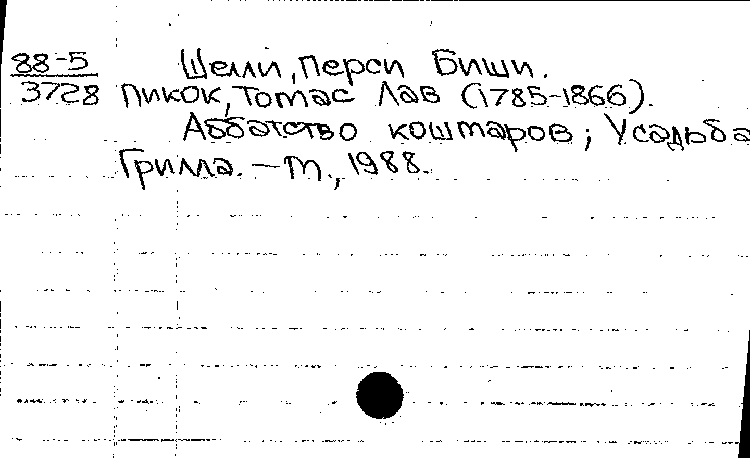 88-5 Шелли, Перси Биши.
3728 Пикок, Томас Лав (1785-1866).
Аббатство кошмаров; Усадьба
Грилла. — М., 1988.